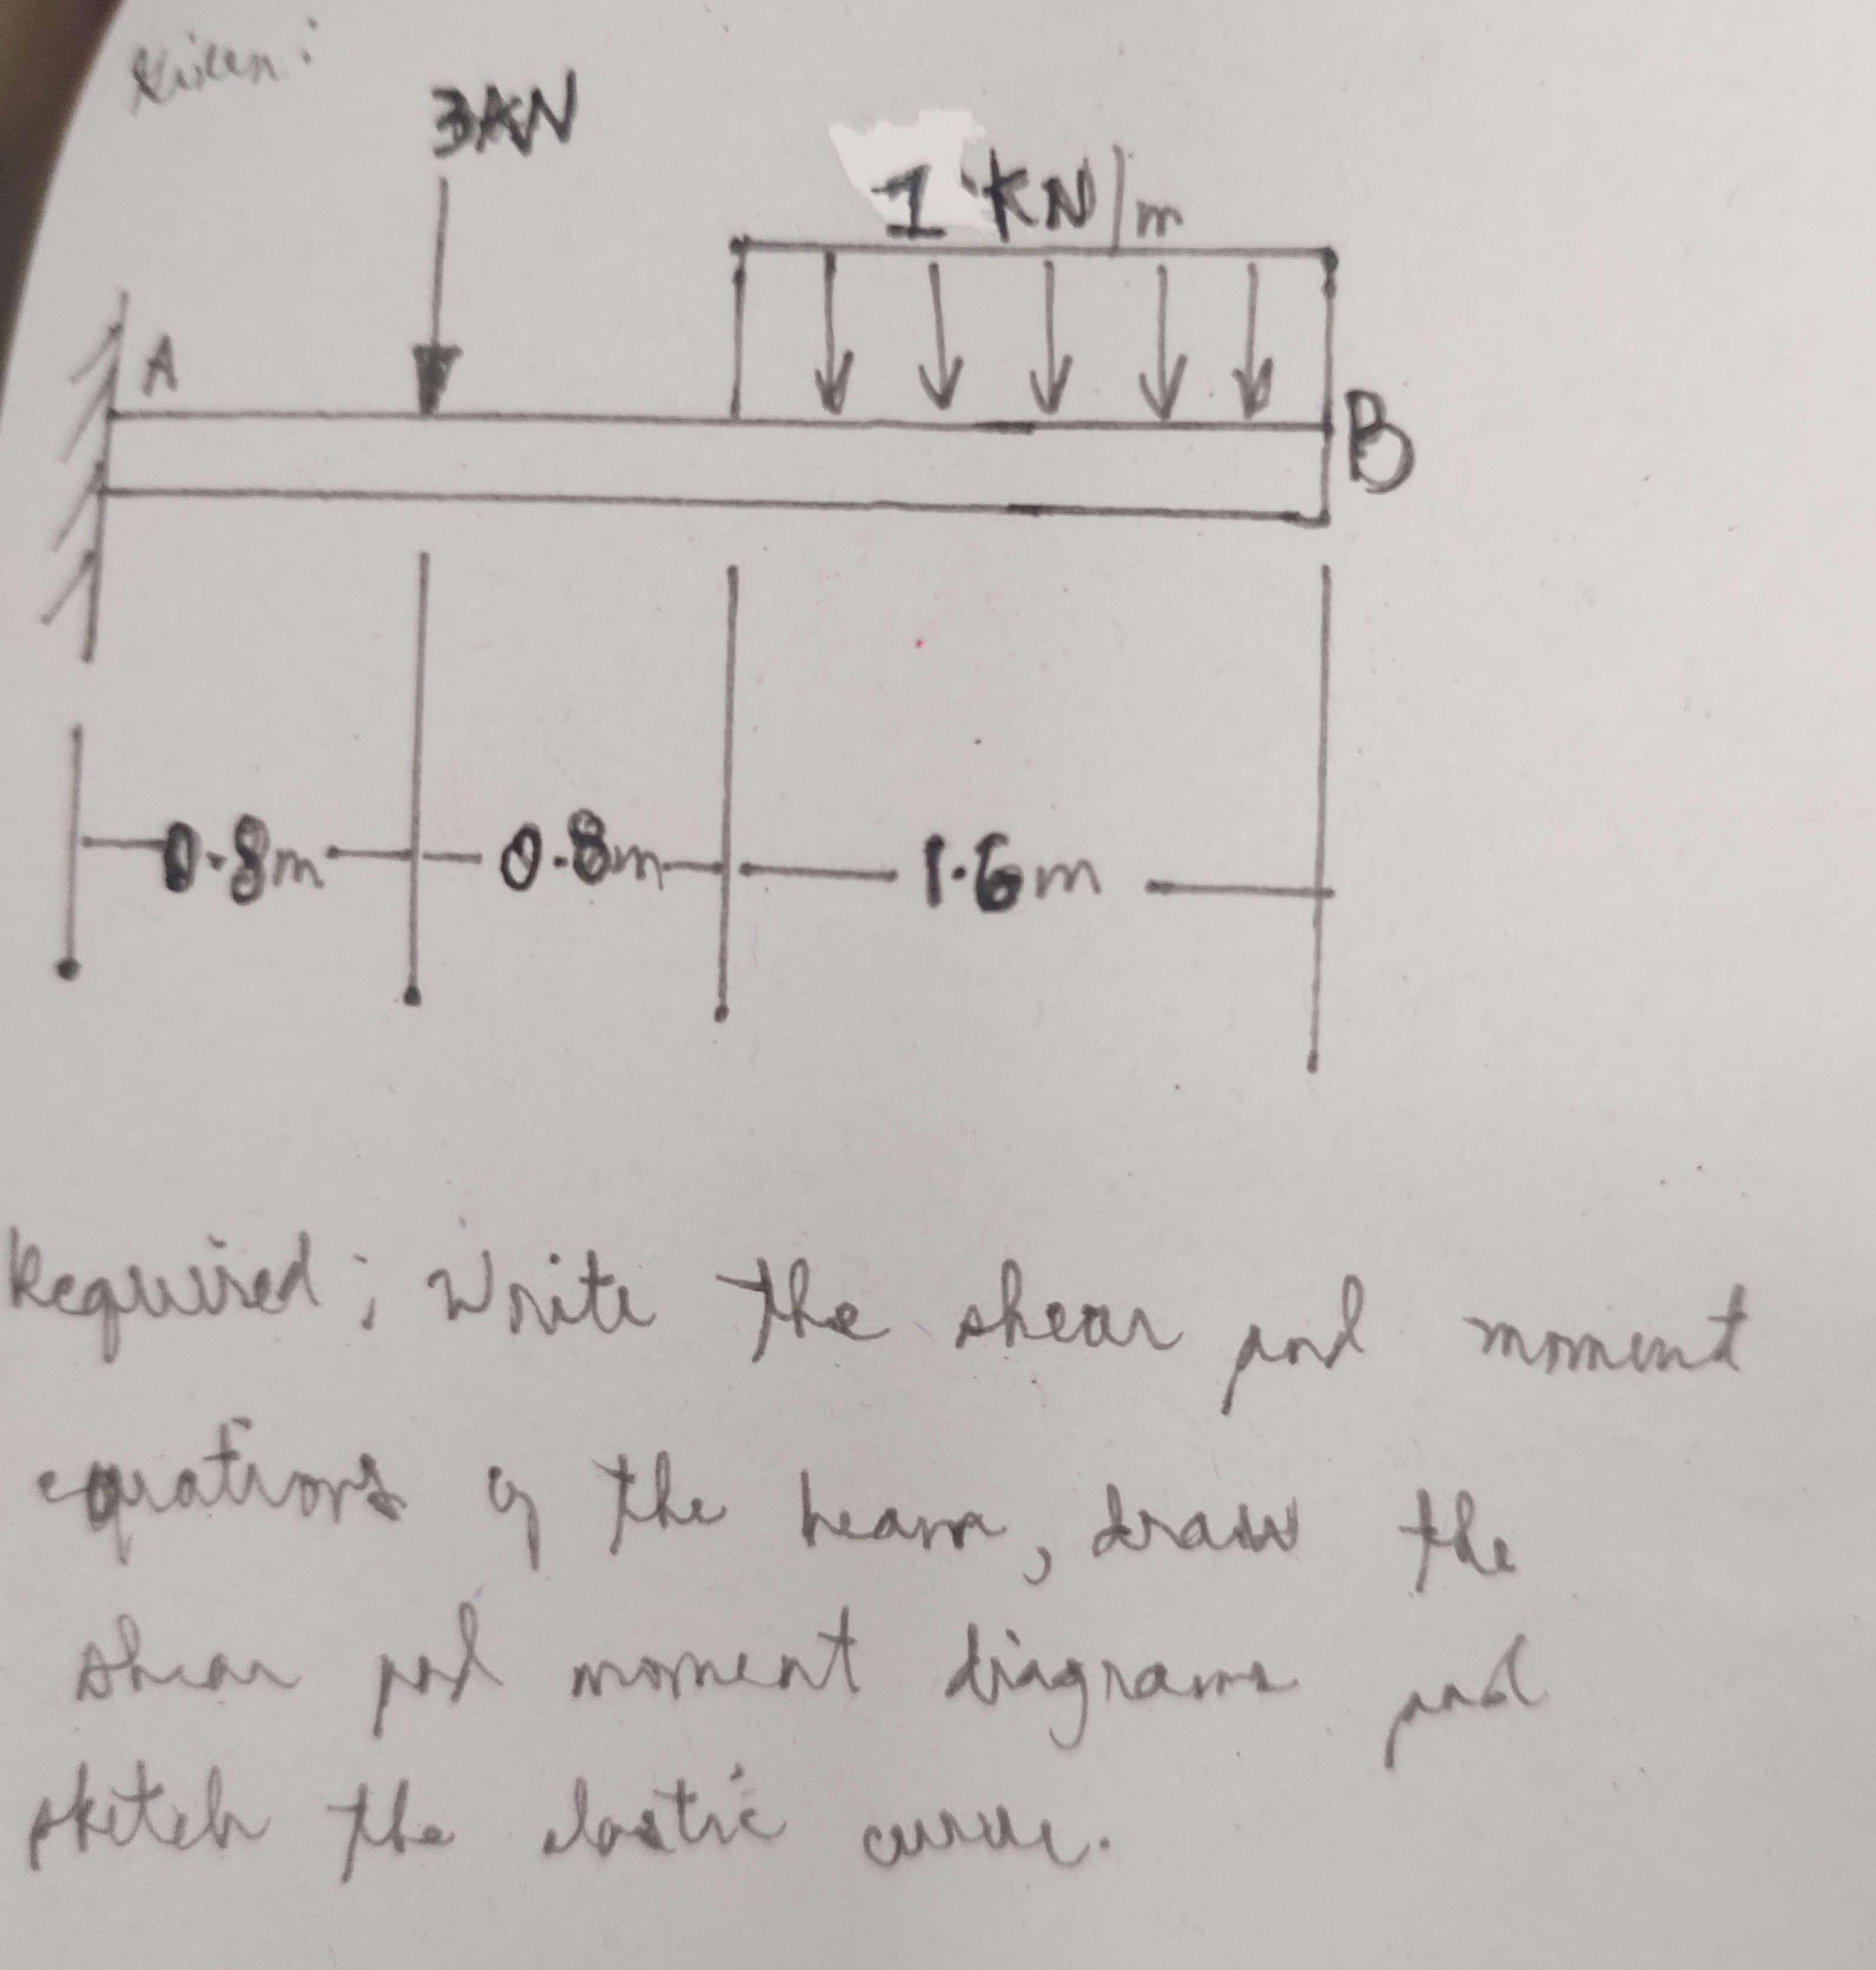 Given:
3KN
1 KN/m
A
B
0.8m
0.8m
1.6m
Required; Write the shear and moment
equations of the beam, draw the
shear and moment diagrams and
sketch the elastic curve.